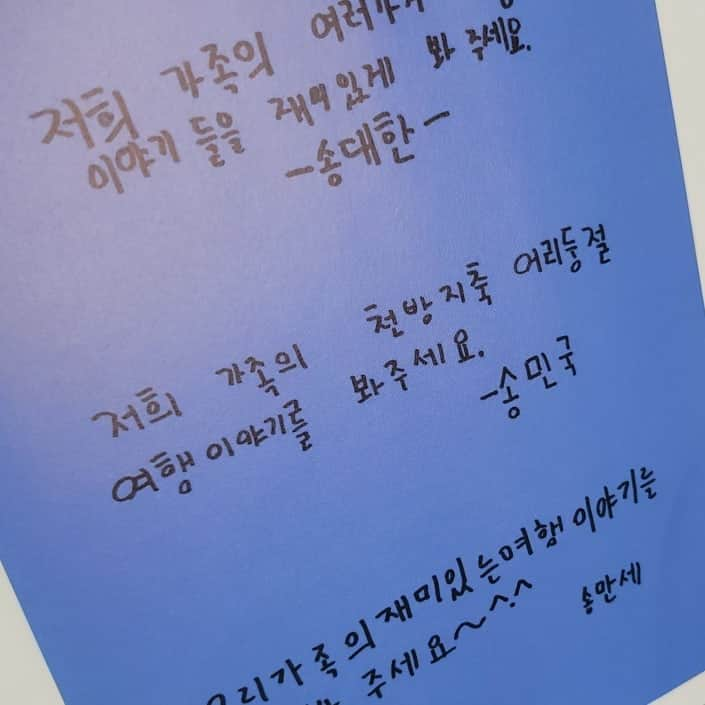 저희 가족의 여러가지
이야기 들을 재미있게 봐 주세요.
-송대한-
저희 가족의 천방지축 어리둥절
여행이야기를 봐주세요.
-송민국
우리가족의재미있는여행이야기를
주세요~^.^
송만세